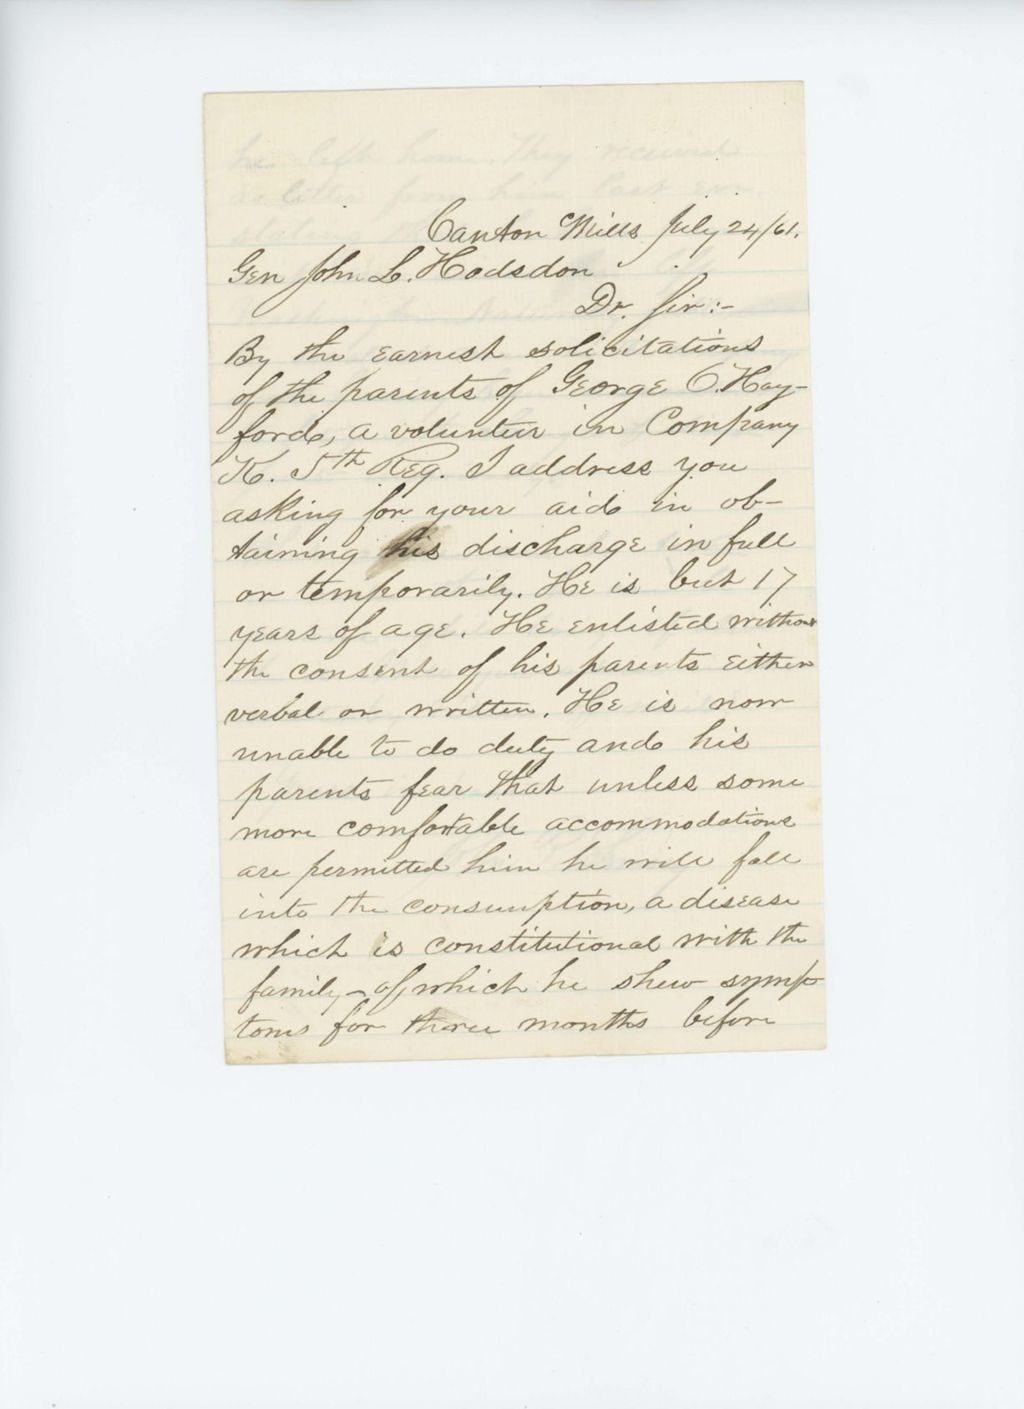 Canton Mills July 24/61.
Gen John L. Hodsdon
Dr. Sir:-
By the earnest solicitations
of the parents of George O. Hay-
ford, a volunteer in Company
K. 5th Reg. I address you
asking for your aid in ob-
taining his discharge in full
or temporarily. He is but 17
years of age. He enlisted without
the consent of his parents either
verbal or written. He is now
unable to do duty and his
parents fear that unless some
more comfortable accommodations
are permitted him he will fall
into the consumption, a disease
which is constitutional with the
family - of which he shew symp
toms for three months before